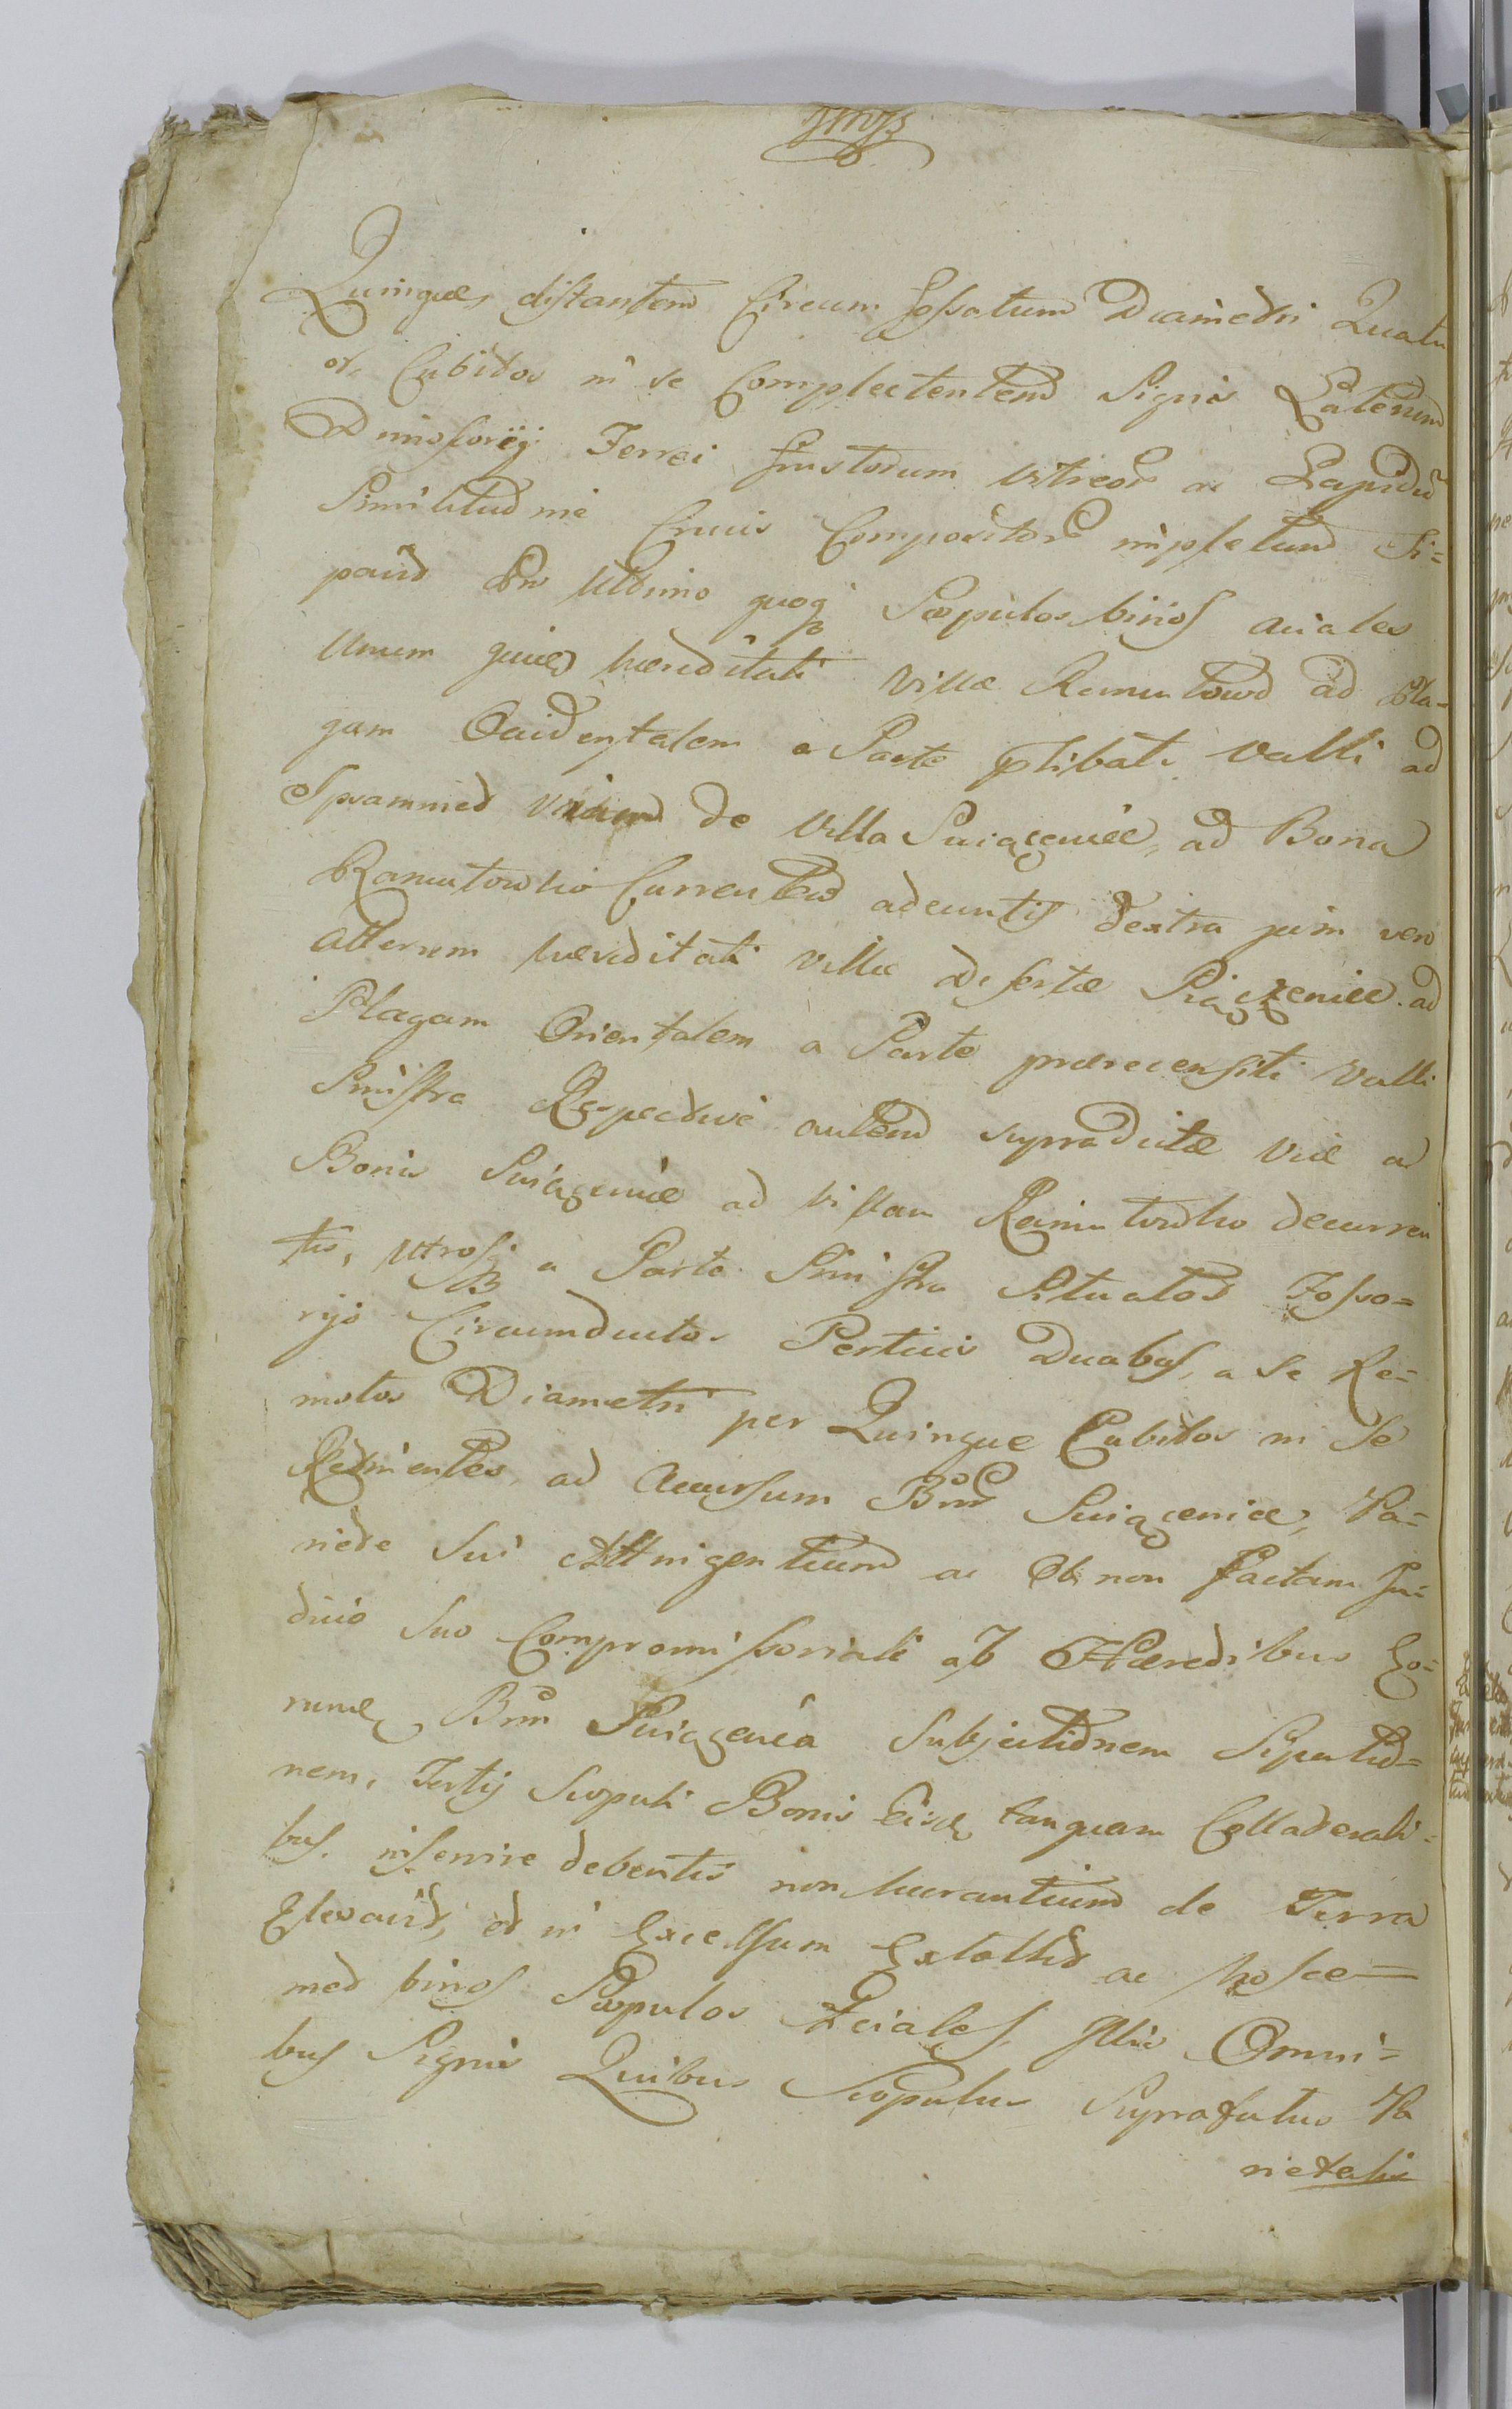 Quinque, distantem Circum fossatum Diametri Quatu
or, Cubitos in se Complectentem Signis Laterum
Ferrei frustorum vitreor ac Lapidu
Similitudine Crucis Compositor impletum Si=
pavit In Ultimo quoq Scopulos binos aciales
Unum quidem hæreditati Villæ Ramutowo ad Pla=
gam Occidentalem a Parte plibati Valli ad
Ipsammet viam de Villa ad Bona
Ramutowko Currentem adeuntis dextra jam vero
alterum hæreditati villæ desertæ ad
Plagam Orientalem a Parte prærecensiti Valli
Sinistra Respective autem supradictæ Viæ a
Bonis ad villam Ramutowko decurren
tis, utrosq a Parte Sinistra Situatos Fosso=
rijo Circumductos Perticis Duabus, a se Re=
motos Diametri per Quinque Cubitos in Se
Retinentes, ad Accursum Bnor Pa=
riete Sui Attingentium ac Ob non factam Ju=
dicio Suo Compromissoriali ab Hæredibus Eo=
rum Bnor Subjectionem Sipatio=
nem, Tertij Scopuli Bonis Eisd tanquam Collaterali=
bus, inservire debentis non de Terra
Elevavit, et in Excelsum Extollit ac hosce=
met binos Scopulos Aciales, Illis Omni=
bus Signis Quibus Scopulus Suprafatus Pa
rietalis